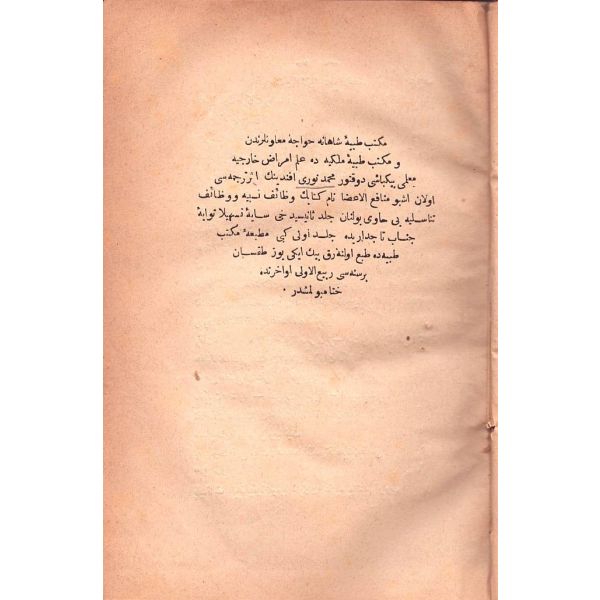 مكتب طبیهٔ شاهانه خواجه معاونلرندن
و مكتب طبیهٔ ملكیه ده علم امراض خارجیه
معلمی بیكباشی دوقتور محمد نوری افندینك اثر ترجمه سی
اولان اشبو منافع الاعضا نام كتابك وظائف نسبیه و وظائف
تناسلیه یی حاوی بولنان جلد ثانیسی دخی سایهٔ تسهیلاتوایهٔ
جناب تاجداریده جلد اولی كبی مطبعهٔ مكتب
طبیه ده طبع اولنه رق بیك ایكی یوز طقسان
بر سنه سی ربیع الاولی اواخرنده
ختامبولمشدر ·